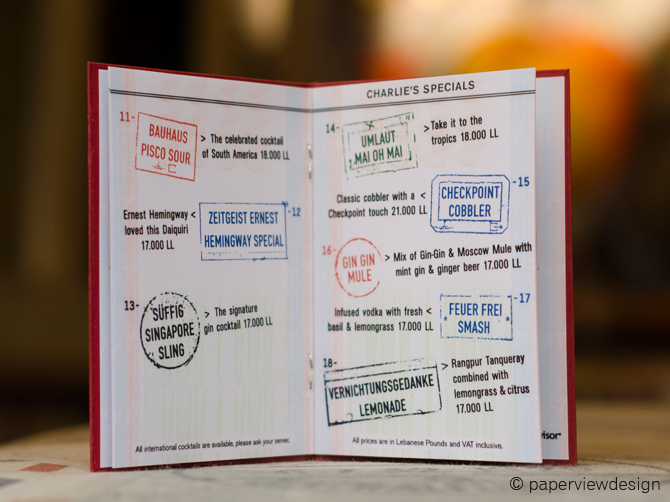 11-
BAUHAUS
PISCO SOUR
> The celebrated cocktail
of South America 18.000 LL
Ernest Hemingway <
loved this Daiquiri
17.000 LL
ZEITGEIST ERNEST
HEMINGWAY SPECIAL
-12
13-
SÜFFIG
SINGAPORE
SLING
> The signature
gin cocktail 17.000 LL
All international cocktails are available, please ask your server.
CHARLIE'S SPECIALS
14-
UMLAUT
MAI OH MAI
> Take it to the
tropics 18.000 LL
Classic cobbler with a <
Checkpoint touch 21.000 LL
CHECKPOINT
COBBLER
-15
16-
GIN GIN
MULE
> Mix of Gin-Gin & Moscow Mule with
mint gin & ginger beer 17.000 LL
Infused vodka with fresh <
basil & lemongrass 17.000 LL
FEUER FREI
SMASH
-17
18-
VERNICHTUNGSGEDANKE
LEMONADE
> Rangpur Tanqueray
combined with
lemongrass & citrus
17.000 LL
All prices are in Lebanese Pounds and VAT inclusive.
visor
© paperviewdesign